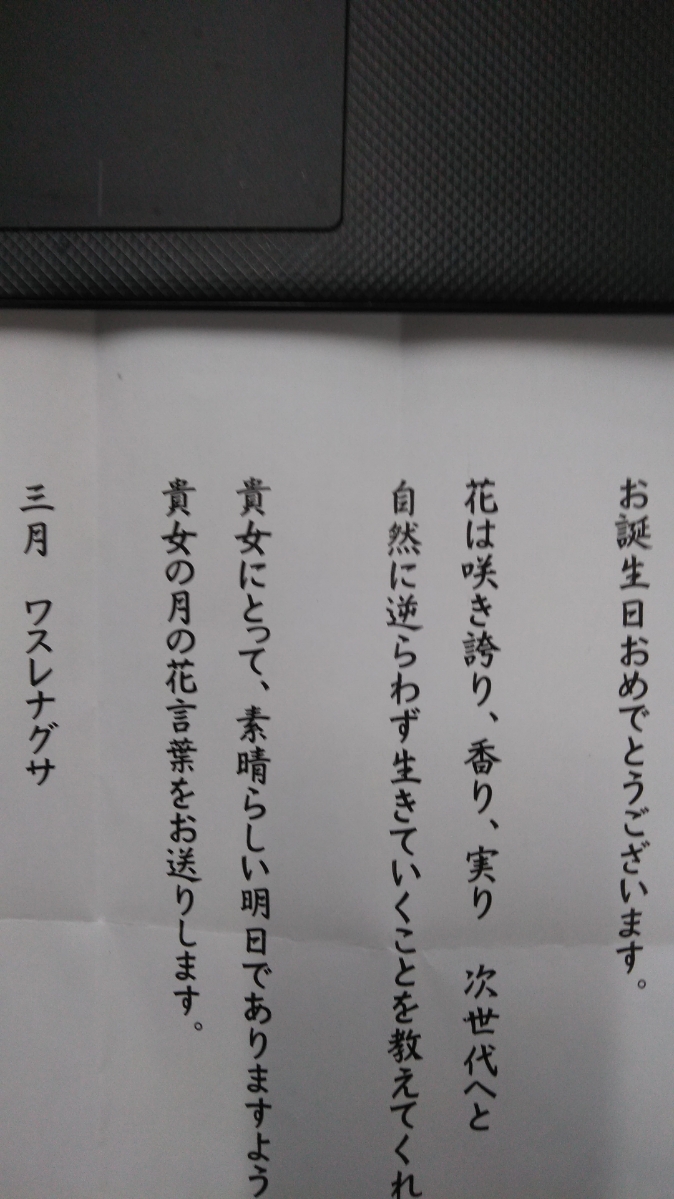 お誕生日おめでとうございます。
花は咲き誇り、香り、実り　次世代へと
自然に逆らわず生きていくことを教えてくれ
貴女にとって、素晴らしい明日でありますよう
貴女の月の花言葉をお送りします。
三月　ワスレナグサ